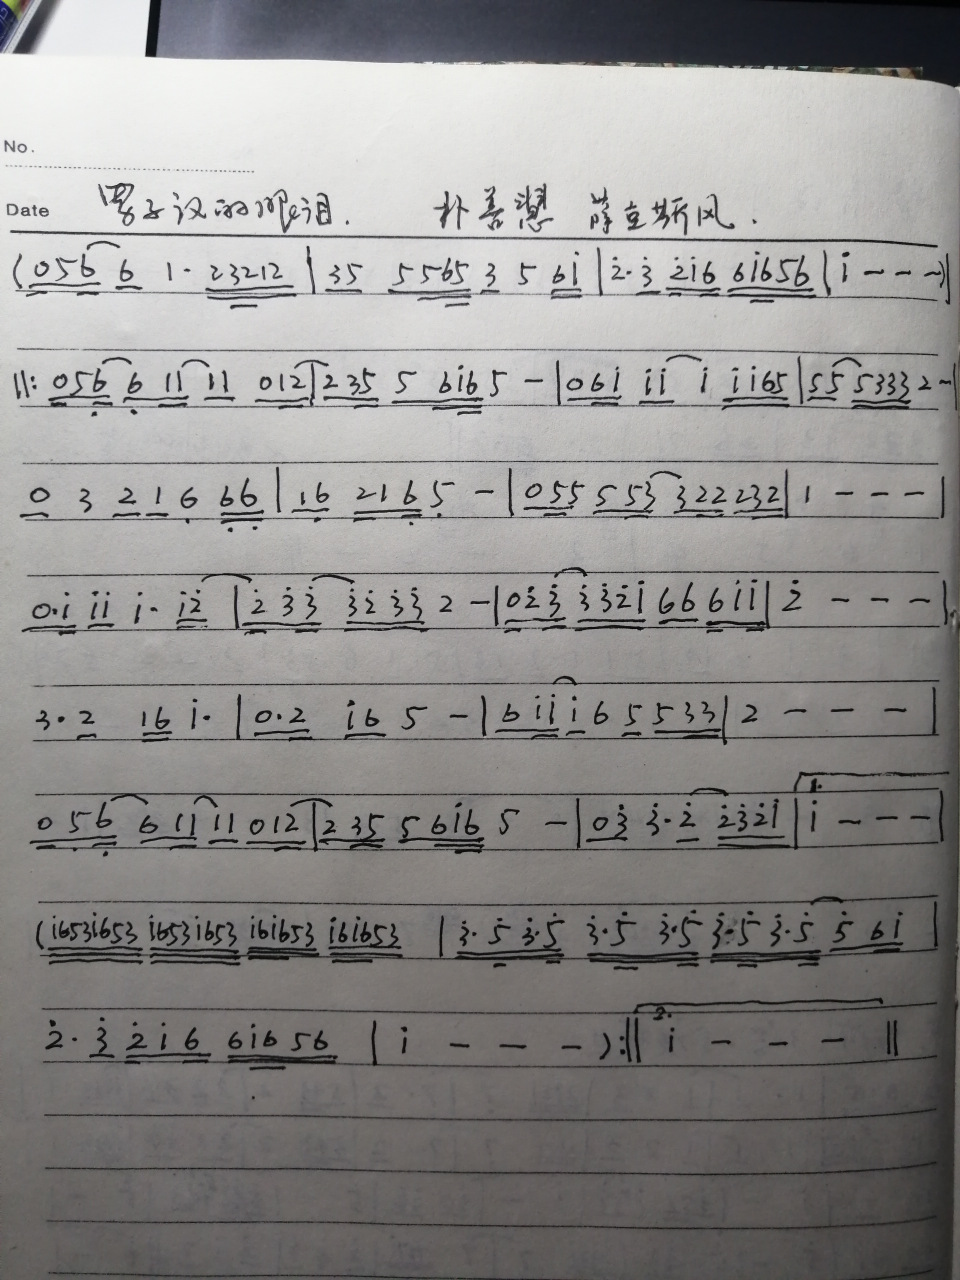 No.
Date 男子汉的眼泪. 朴善想 萨克斯风.
(056 6 1· 23212 | 35 5565 3 5 6i | 2̇·3̇ 2̇i6 6i656 | i - - -)|
||: 056 6 11 11 012 | 235 5 6i6 5 - | 06i ii i ii65 | 55 5333 2 - |
0 3 2 1 6 66 | 16 216 5 - | 055 553 322 232 | 1 - - - |
0·i ii i· i2̇ | 2̇ 3̇3̇ 3̇2̇ 3̇3̇ 2 - | 02̇3̇ 3̇3̇2̇i 66 6ii | 2̇ - - - |
3·2 i6 i· | 0·2 i6 5 - | 6ii i 6 5 533 | 2 - - - |
056 6 11 11 012 | 235 56i6 5 - | 03̇ 3̇·2̇ 2̇3̇2̇i | 1. i - - - |
(i653i653 i653i653 i6i653 i6i653 | 3̇·5̇ 3̇·5̇ 3̇·5̇ 3̇·5̇ 3̇·5̇ 3̇·5̇ 5̇ 6i |
2̇·3̇ 2̇i6 6i656 | i - - - ):|| 2. i - - - ||